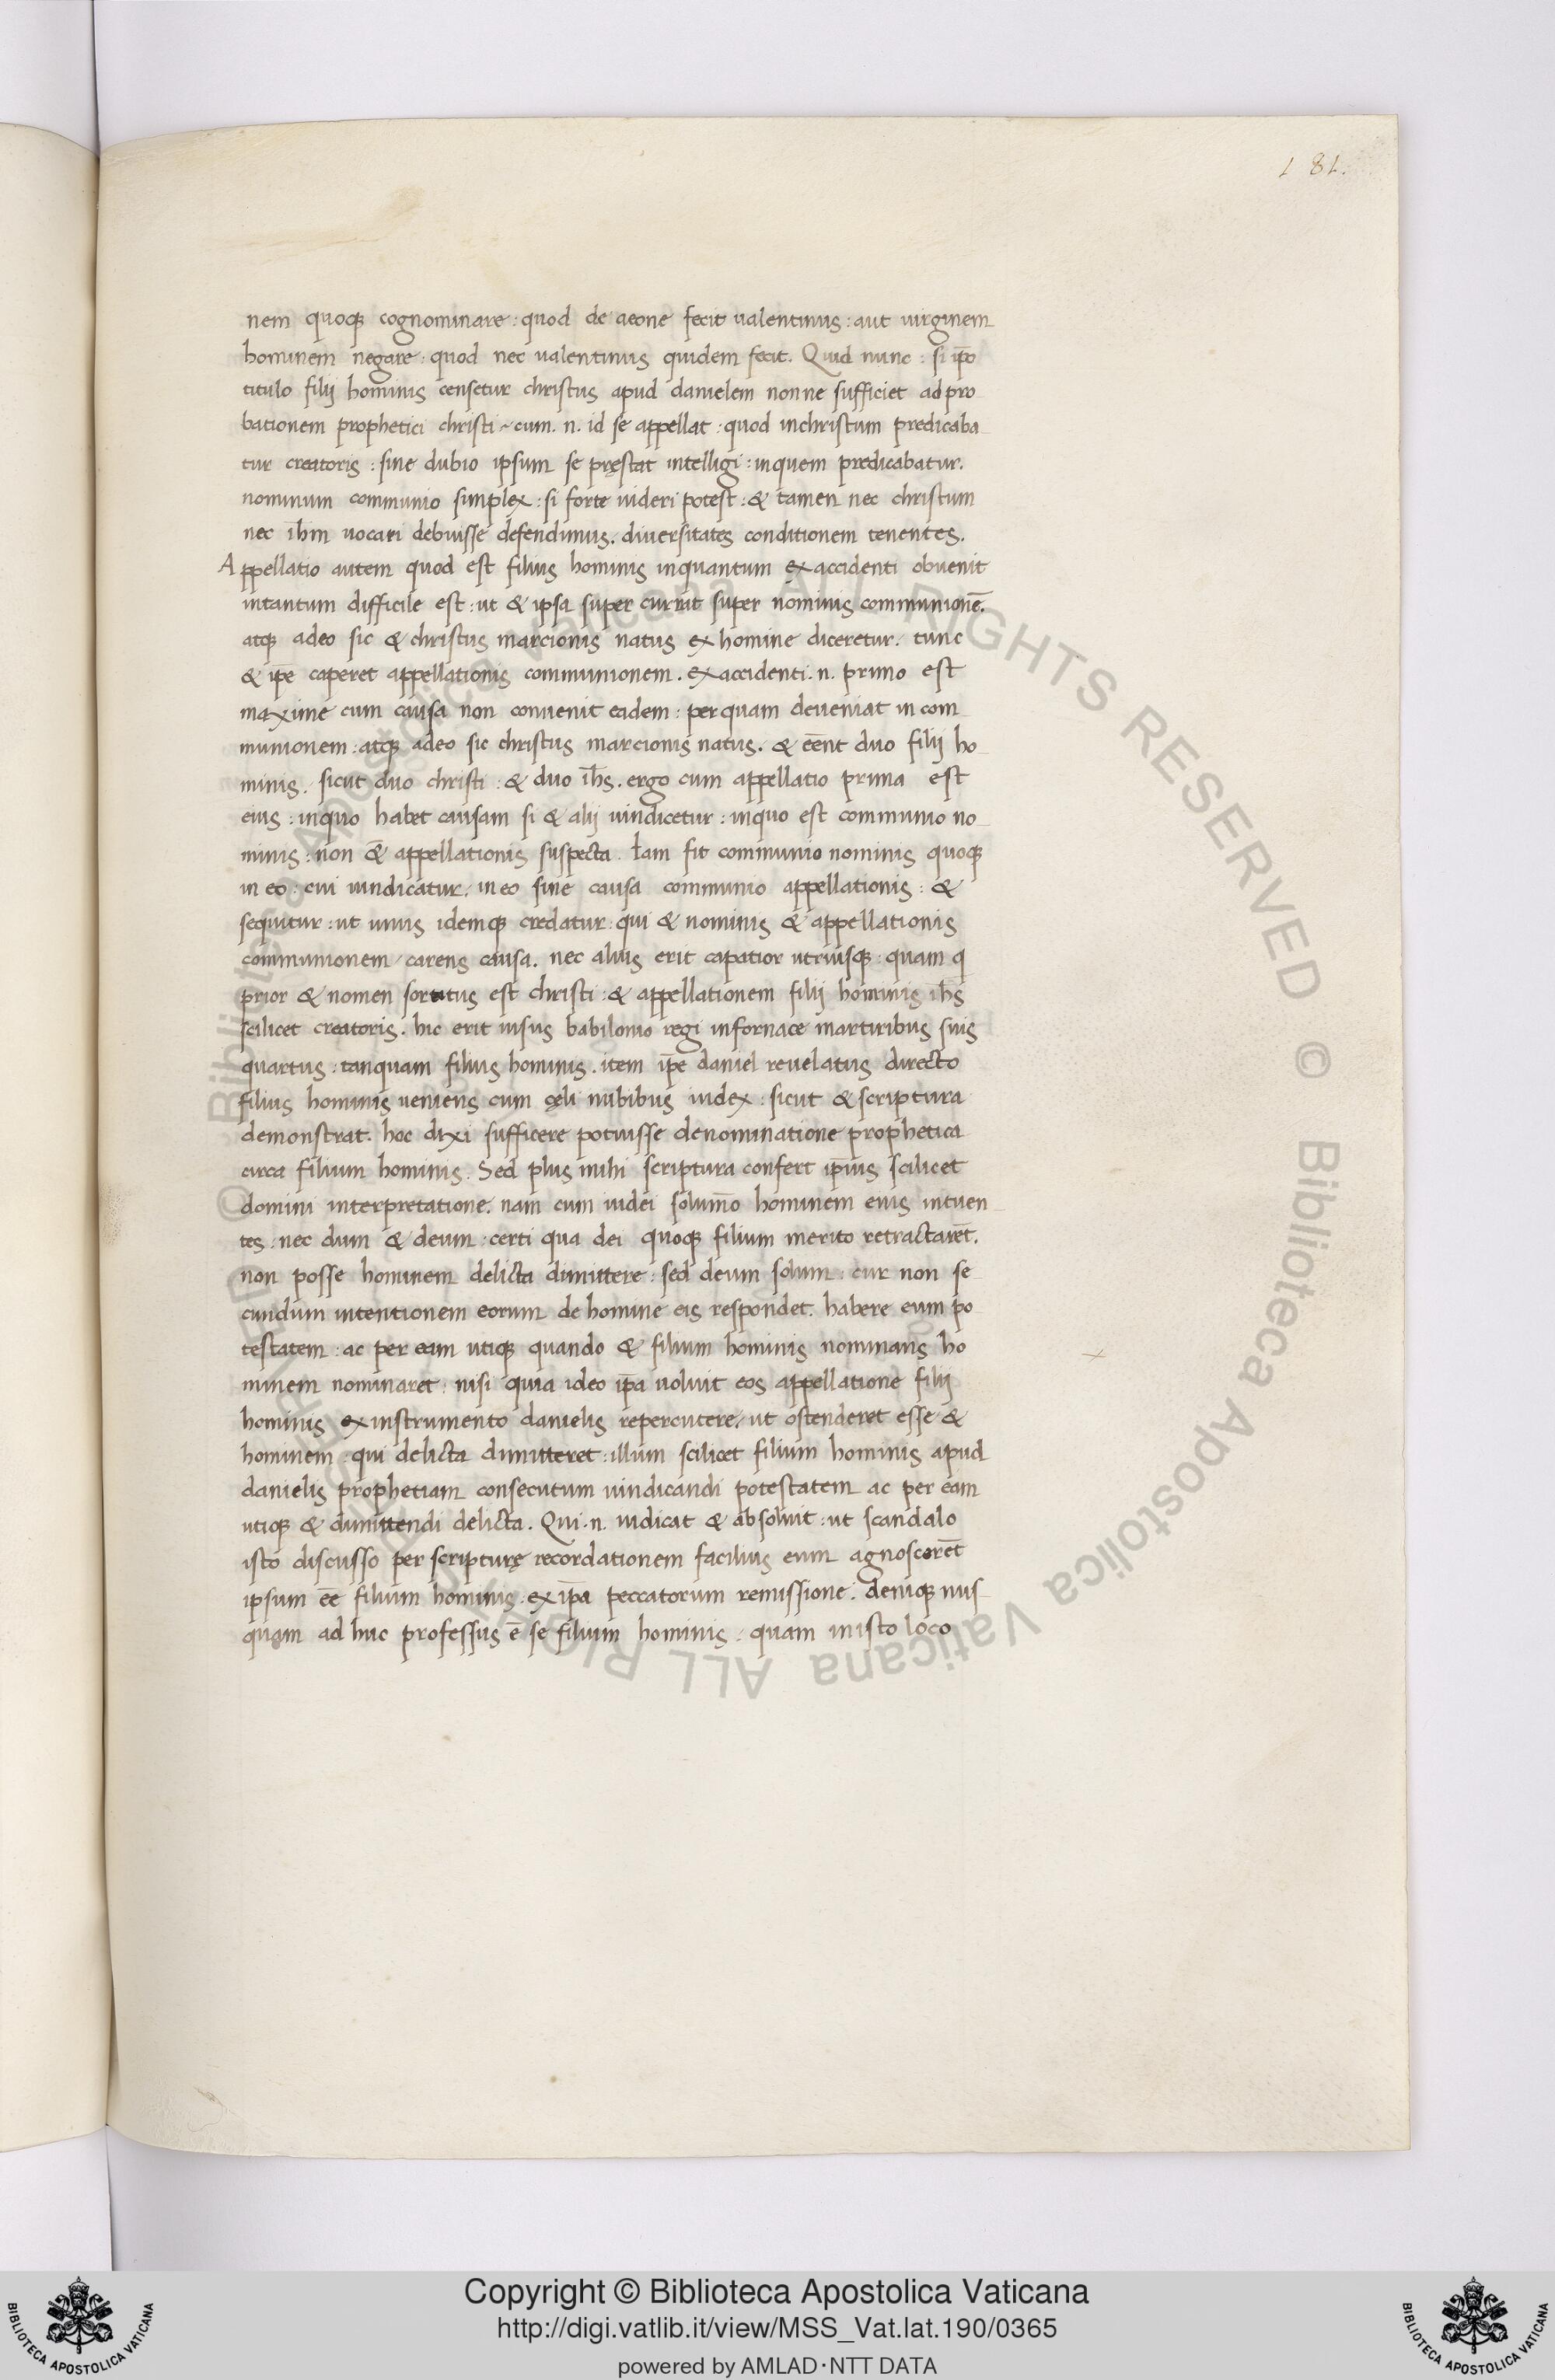 181.
nem quoq; cognominare : quod de aeone fecit ualentinus : aut uirginem
hominem negare : quod nec ualentinus quidem fecit. Quid nunc : si ip̄o
titulo filij hominis censetur christus apud danielem non ne sufficiet ad pro
bationem prophetici christi ~ cum .n. id se appellat : quod inchristum predicaba
tur creatoris : sine dubio ipsum se pręstat intelligi : inquem predicabatur.
nominum communio simplex : si forte uideri potest : & tamen nec christum
nec ih̄m uocari debuisse defendimus. diuersitates conditionem tenentes.
Appellatio autem quod est filius hominis inquantum ex accidenti obuenit
intantum difficile est : ut & ipsa super currat super nominis communionē.
atq; adeo sic & christus marcionis natus ex homine diceretur. tunc
& ip̄e caperet appellationis communionem. ex accidenti .n. primo est
maxime cum causa non conuenit eadem : per quam deueniat in com
munionem : atq; adeo sic christus marcionis natus. & eēnt duo filij ho
minis. sicut duo christi : & duo ih̄s. ergo cum appellatio prima est
eius : inquo habet causam si & alij uindicetur : inquo est communio no
minis : non & appellationis suspecta. Iam fit communio nominis quoq;
in eo : cui uindicatur. in eo sine causa communio appellationis : &
sequitur : ut unus idemq; credatur : qui & nominis & appellationis
communionem carens causa. nec alius erit capatior utriusq; : quam q
prior & nomen sortitus est christi : & appellationem filij hominis ih̄s
scilicet creatoris. hic erit uisus babilonio regi infornace martiribus suis
quartus : tanquam filius hominis. item ip̄e daniel reuelatus directo
filius hominis ueniens cum cęli nubibus iudex : sicut & scriptura
demonstrat. hoc dixi sufficere potuisse denominatione prophetica
circa filium hominis. Sed plus mihi scriptura confert ip̄ius scilicet
domini interpretatione. nam cum iudei solum̄o hominem eius intuen
tes : nec dum & deum : certi qua dei quoq; filium merito retractarēt.
non posse hominem delicta dimittere : sed deum solum : cur non se
cundum intentionem eorum de homine eis respondet. habere eum po
testatem : ac per eam utiq; quando & filium hominis nominans ho
minem nominaret : nisi quia ideo ip̄a uoluit eos appellatione filij
hominis ex instrumento danielis repercutere. ut ostenderet esse &
hominem : qui delicta dimitteret : illum scilicet filium hominis apud
danielis prophetiam consecutum uindicandi potestatem ac per eam
utiq; & dimittendi delicta. Qui .n. iudicat & absoluit : ut scandalo
isto discusso per scripturę recordationem facilius eum agnoscerēt
ipsum eē filium hominis : ex ip̄a peccatorum remissione. deniq; nus
quam ad huc professus ē se filium hominis : quam in isto loco
© Biblioteca Apostolica Vaticana ALL RIGHTS RESERVED © Biblioteca Apostolica Vaticana ALL RIGHTS RESERVED
Copyright © Biblioteca Apostolica Vaticana
http://digi.vatlib.it/view/MSS_Vat.lat.190/0365
powered by AMLAD·NTT DATA
BIBLIOTECA APOSTOLICA VATICANA
BIBLIOTECA APOSTOLICA VATICANA